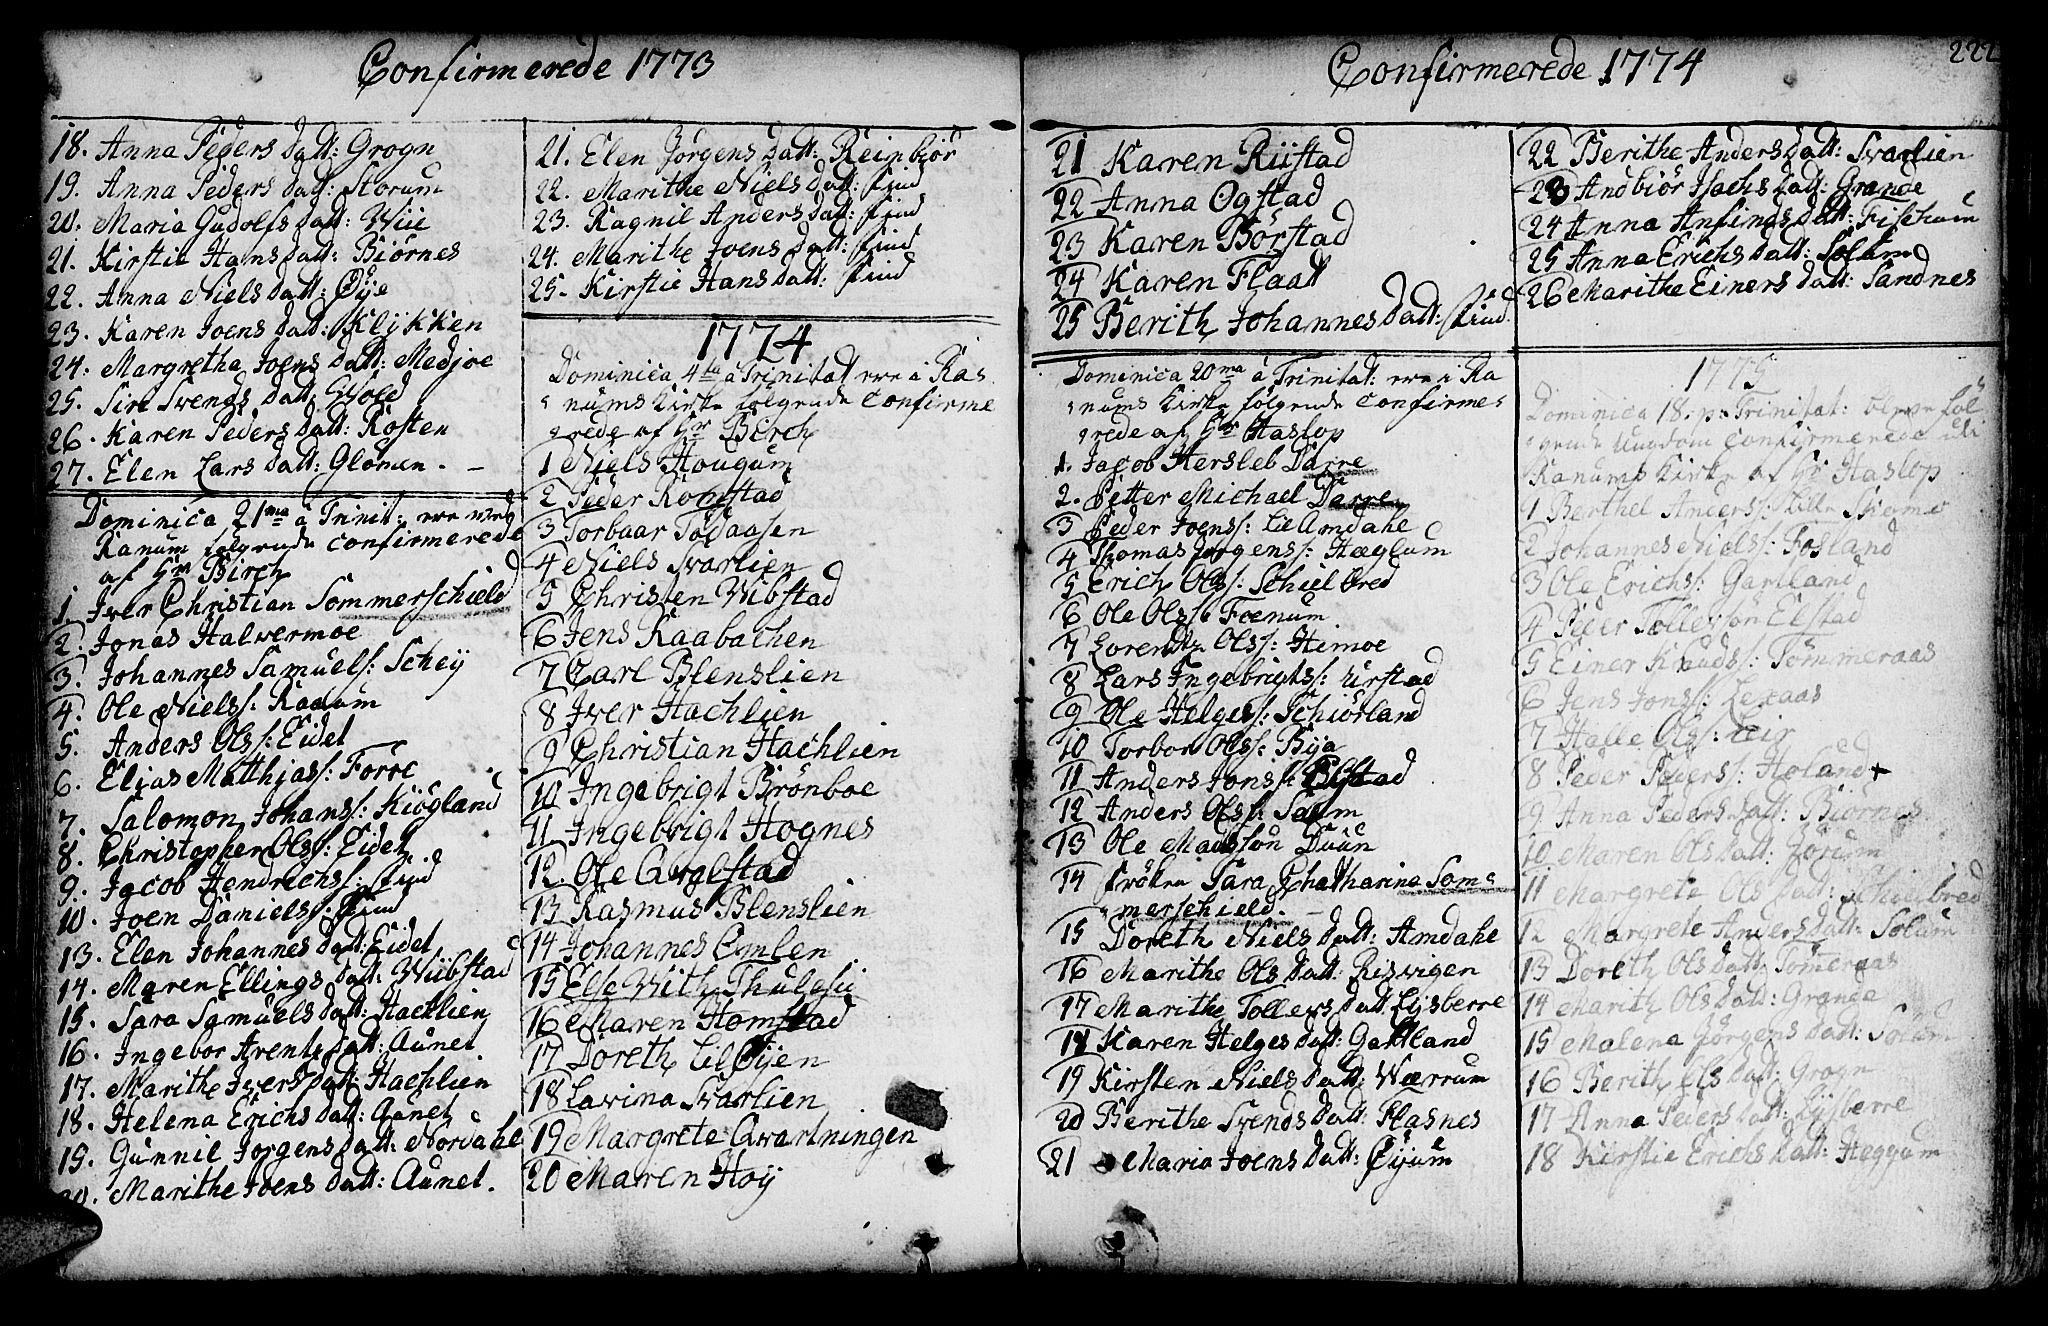 Confirmerede 1773
18. Anna Peders Datt: Grogn
19. Anna Peders Datt: Storum
20. Maria Gudolfs Datt: Wiie
21. Kirstie Hans Datt: Biörnes
22. Anna Niels Datt: Øye
23. Karen Joens Datt: Klykken
24. Margretha Joens Datt: Medjoe
25. Siri Svends Datt:
26. Karen Peders Datt: Rosten
27. Elen Lars Datt: Glömen. –
Dominica 21ma à Trinit: ere ved
Ranum følgende Confirmerede
af Hr Birch
1. Iver Christian Sommerschield
2. Jonas Halvermoe
3. Johannes Samuels: Schey
4. Ole Niels: Raaum
5. Anders Ols: Eidet
6. Elias Matthias: Forre
7. Salomon Johans: Kiögland
8. Christopher Ols: Eidet
9. Jacob Hendrichs: Find
10. Joen Daniels: Find
13. Elen Johannes Datt: Eidet
14. Maren Ellings Datt: Wiibstad
15. Sara Samuels Datt: Hachlien
16. Ingebor Arents Datt: Aunet
17. Marithe Ivers Datt: Hachlien
18. Helena Erichs Datt: Aunet
19. Gunnil Jorgens Datt: Nordahl
20. Marithe Joens Datt: Aunet.
21. Elen Jörgens Datt: Reinbiör
22. Marithe Niels Datt: Find
23. Ragnil Anders Datt: Find
24. Marithe Joens Datt: Find
25. Kirstie Hans Datt: Find
1774
Dominica 4ta à Trinitat: ere i Ra-
nums Kirke følgende Confirme
rede af Hr Birch
1 Niels Hougum
2 Peder Romstad
3 Torbaar Tödaasen
4 Niels Svarlien
5 Christen Wibstad
6 Jens Raabachen
7 Carl Blenslien
8 Iver Hachlien
9 Christian Hachlien
10 Ingebrigt Brönboe
11 Ingebrigt Hognes
12. Ole Avalstad
13 Rasmus Blenslien
14 Johannes Emlen
15 Else With Thulesii
16 Maren Homstad
17 Doreth Lil Øyen
18 Lavina Svarlien
19 Margrete Qvartningen
20 Maren Hoy
Confirmerede 1774
222
21 Karen Riistad
22 Anna Ogstad
23 Karen Börstad
24 Karen Flaat
25 Berith Johannes Datt: Find
Dominica 20ma à Trinitat: ere i Ra
nums Kirke følgende Confirme-
rede af Hr Haslop
1. Jacob Hersleb Darre
2. Petter Michael Darre
3 Peder Joens: Lil Amdahl
4 Thomas Jorgens: Hæglum
5 Erich Ols: Schielbred
6 Ole Ols: Foenum
7 Lorentz Ols: Hemoe
8 Lars Ingebrigts: Lirstad
9 Ole Helges: Schiörland
10 Torbor Ols: Bya
11 Anders Jons: Elstad
12 Anders Ols: Salm
13 Ole Madsøn Duun
14 Frökn Sara Chatharina Som-
merschield. –
15 Doreth Niels Datt: Amdahl
16 Marithe Ols Datt: Risvigen
17 Marithe Tollers Datt: Lysberre
18 Karen Helges Datt: Gartland
19 Kirsten Niels Datt: Wærrum
20 Berithe Svends Datt: Flasnes
21 Maria Joens Datt: Öyum
22 Berithe Anders Datt: Svarlien
23 Andbiör Isachs Datt: Grande
24 Anna Anfinds Datt: Fischum
25 Anna Erichs Datt: Solum
26 Marithe Einers Datt: Sandnes
1775
Dominica 18. p: Trinitat: bleve föl
gende Ungdom Confirmerede udi
Ranums Kirke af Hr Haslop
1 Berthel Anders: Lille
2 Johannes Niels: Fosland
3 Ole Erichs: Gartland
4 Peder Tollefsön Elstad
5 Einer Knuds: Tömmeraas
6 Jens Jons: Leraas
7 Halle Ols: Leir
8 Peder Peders: Holand +
9 Anna Peders Datt: Biörnes
10 Maren Ols Datt: Jörum
11 Margrete Ols Datt: Schielbred
12 Margrete Anders Datt: Solum
13 Doreth Ols Datt: Tömeraas
14 Marith Ols Datt: Grande
15 Malena Jörgens Datt:
16 Berith Ols Datt: Grogn
17 Anna Peders Datt: Lysberre
18 Kirstie Erichs Datt: Heggum